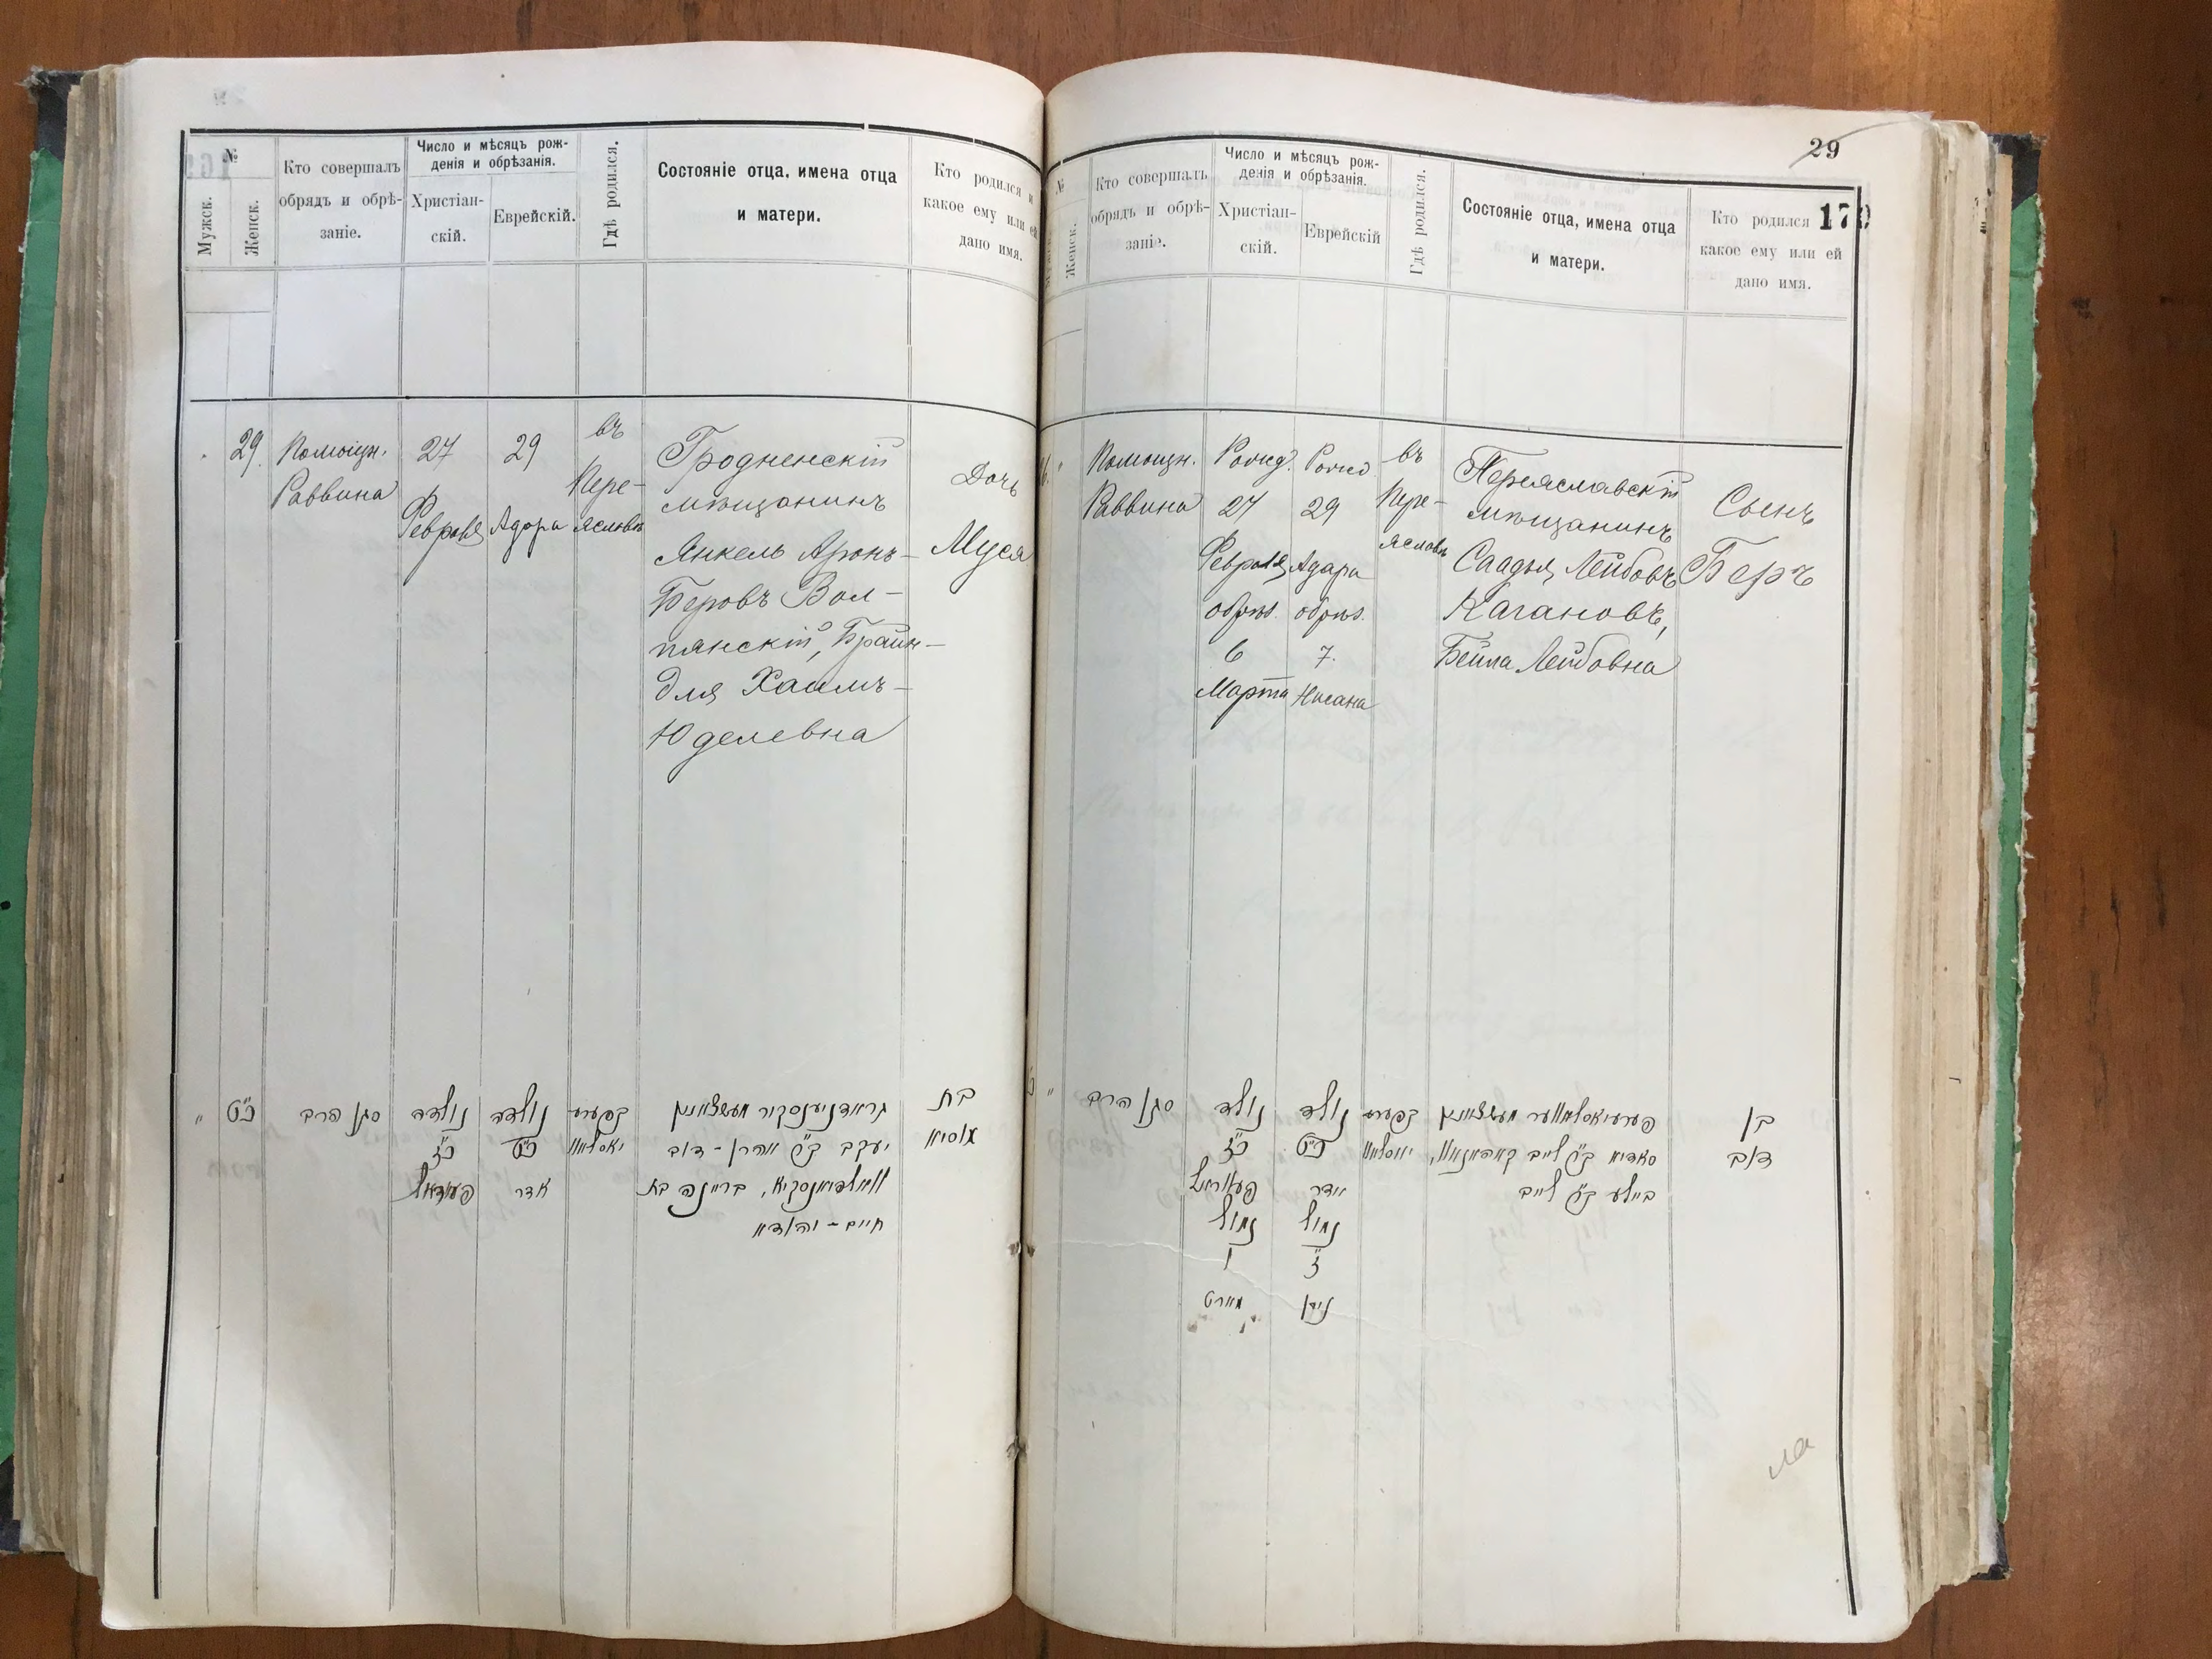 №
Мужск.
Женск.
Кто совершалъ
обрядъ и обрѣ-
заніе.
Число и мѣсяцъ рож-
денія и обрѣзанія.
Христіан-
скій.
Еврейскій.
Гдѣ родился.
Состояніе отца, имена отца
и матери.
Кто родился и
какое ему или ей
дано имя.
29.
Помощн.
Раввина
27
Февраля
29
Адара
въ
Пере-
яславѣ
Гродненскій
мѣщанинъ
Янкель Аронъ-
Беровъ Вол-
пянскій, Браин-
для Хаимъ-
Юделевна
Дочь
Муся
כ״ט
סגן הרב
נולדה
כ״ז
פעווראל
נולדה
כ״ט
אדר
בפערע
יאסלאוו
גראדניענסקיר מעשצאנין
יעקב ב״ר אהרן - דוב
וואלפיאנסקיא, בריינה בת
חיים - יהודא
בת
מוסיא
29
170
№
Мужск.
Женск.
Кто совершалъ
обрядъ и обрѣ-
заніе.
Число и мѣсяцъ рож-
денія и обрѣзанія.
Христіан-
скій.
Еврейскій
Гдѣ родился.
Состояніе отца, имена отца
и матери.
Кто родился
какое ему или ей
дано имя.
Помощн.
Раввина
Рожд.
27
Февраля
обрѣз.
6
Марта
Рожд
29
Адара
обрѣз.
7.
Нисана
въ
Пере-
яславѣ
Переяславскій
мѣщанинъ
Саадья Лейбовъ
Кагановъ,
Бейла Лейбовна
Сынъ
Беръ
סגן הרב
נולד
כ״ז
פעווראל
נמול
ו
מארט
נולד
כ״ט
אדר
נמול
ז
ניסן
בפערע
יאסלאוו
פערעיאסלאווער מעשצאנין
סאדיא ב״ר לייב קאהאנאוו,
ביילע ב״ר לייב
בן
דוב